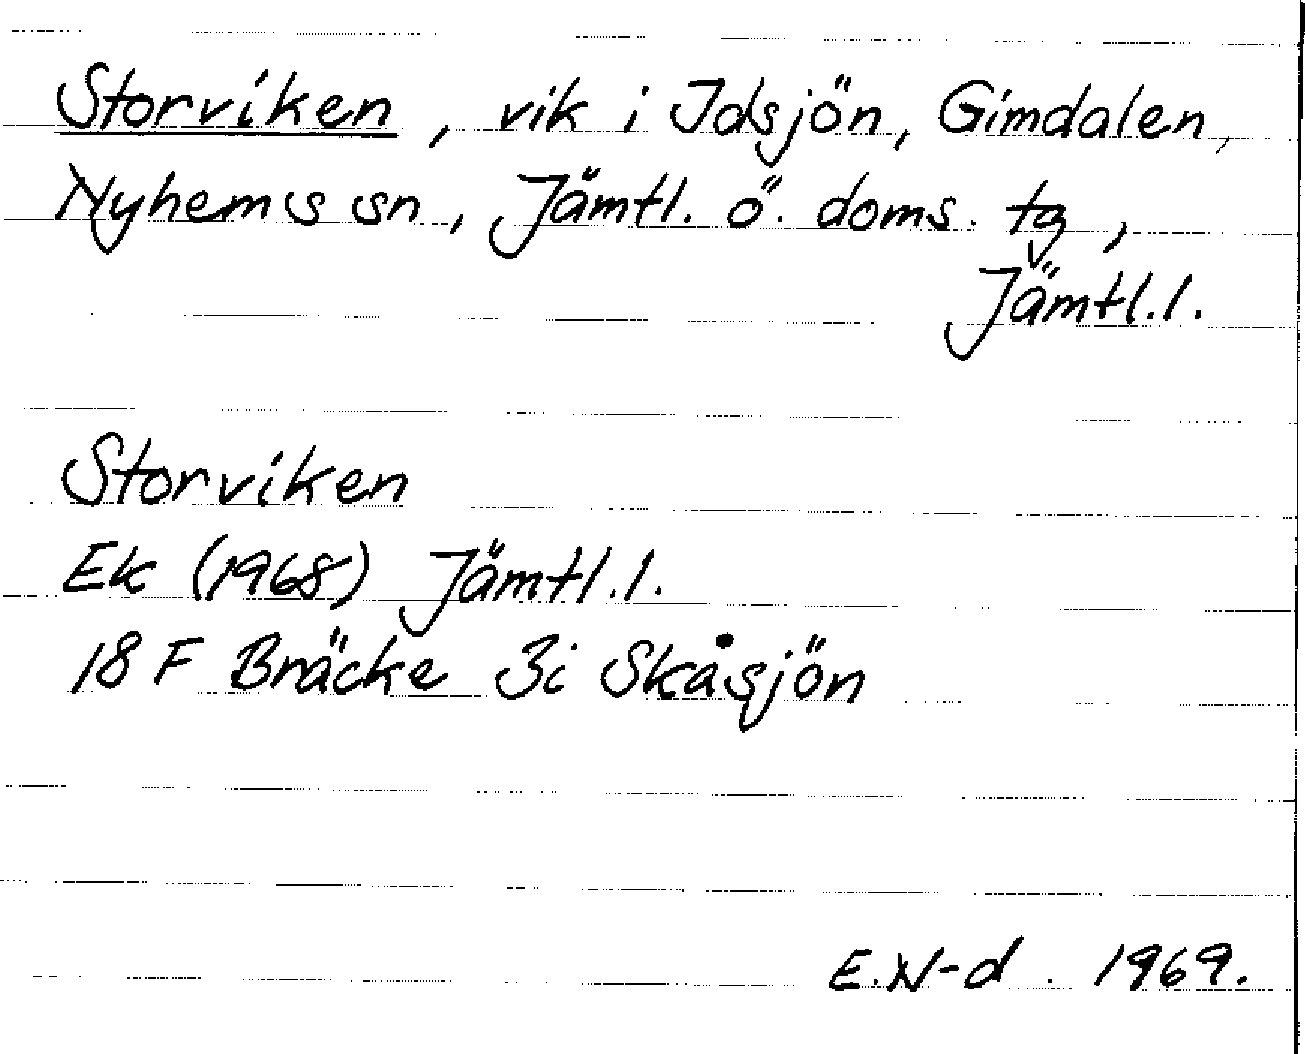 Storviken, vik i Idsjön, Gimdalen,
Nyhems sn, Jämtl. ö. doms. tg,
Jämtl.l.
Storviken
Ek (1968) Jämtl.l.
18 F Bräcke 3i Skåsjön
E.N-d. 1969.